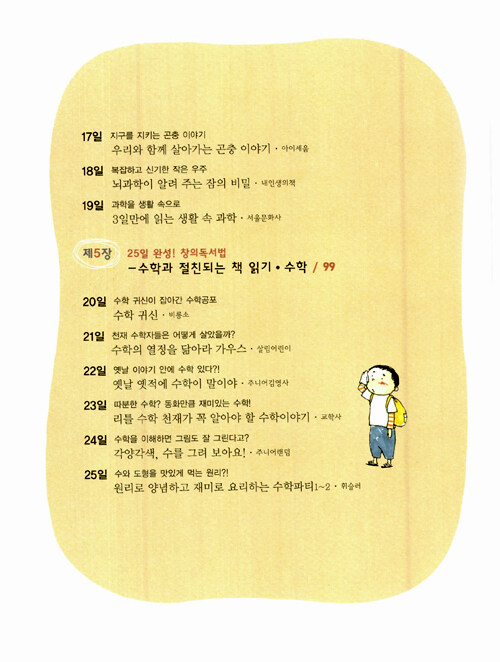 17일 지구를 지키는 곤충 이야기
우리와 함께 살아가는 곤충 이야기 · 아이세움
18일 복잡하고 신기한 작은 우주
뇌과학이 알려 주는 잠의 비밀 · 내인생의책
19일 과학을 생활 속으로
3일만에 읽는 생활 속 과학 · 서울문화사
제5장 25일 완성! 창의독서법
-수학과 절친되는 책 읽기 • 수학 / 99
20일 수학 귀신이 잡아간 수학공포
수학 귀신 · 비룡소
21일 천재 수학자들은 어떻게 살았을까?
수학의 열정을 닮아라 가우스 · 살림어린이
22일 옛날 이야기 안에 수학 있다?!
옛날 옛적에 수학이 말이야 · 주니어김영사
23일 따분한 수학? 동화만큼 재미있는 수학!
리틀 수학 천재가 꼭 알아야 할 수학이야기 · 교학사
24일 수학을 이해하면 그림도 잘 그린다고?
각양각색, 수를 그려 보아요! · 주니어랜덤
25일 수와 도형을 맛있게 먹는 원리?!
원리로 양념하고 재미로 요리하는 수학파티1~2 · 휘슬러